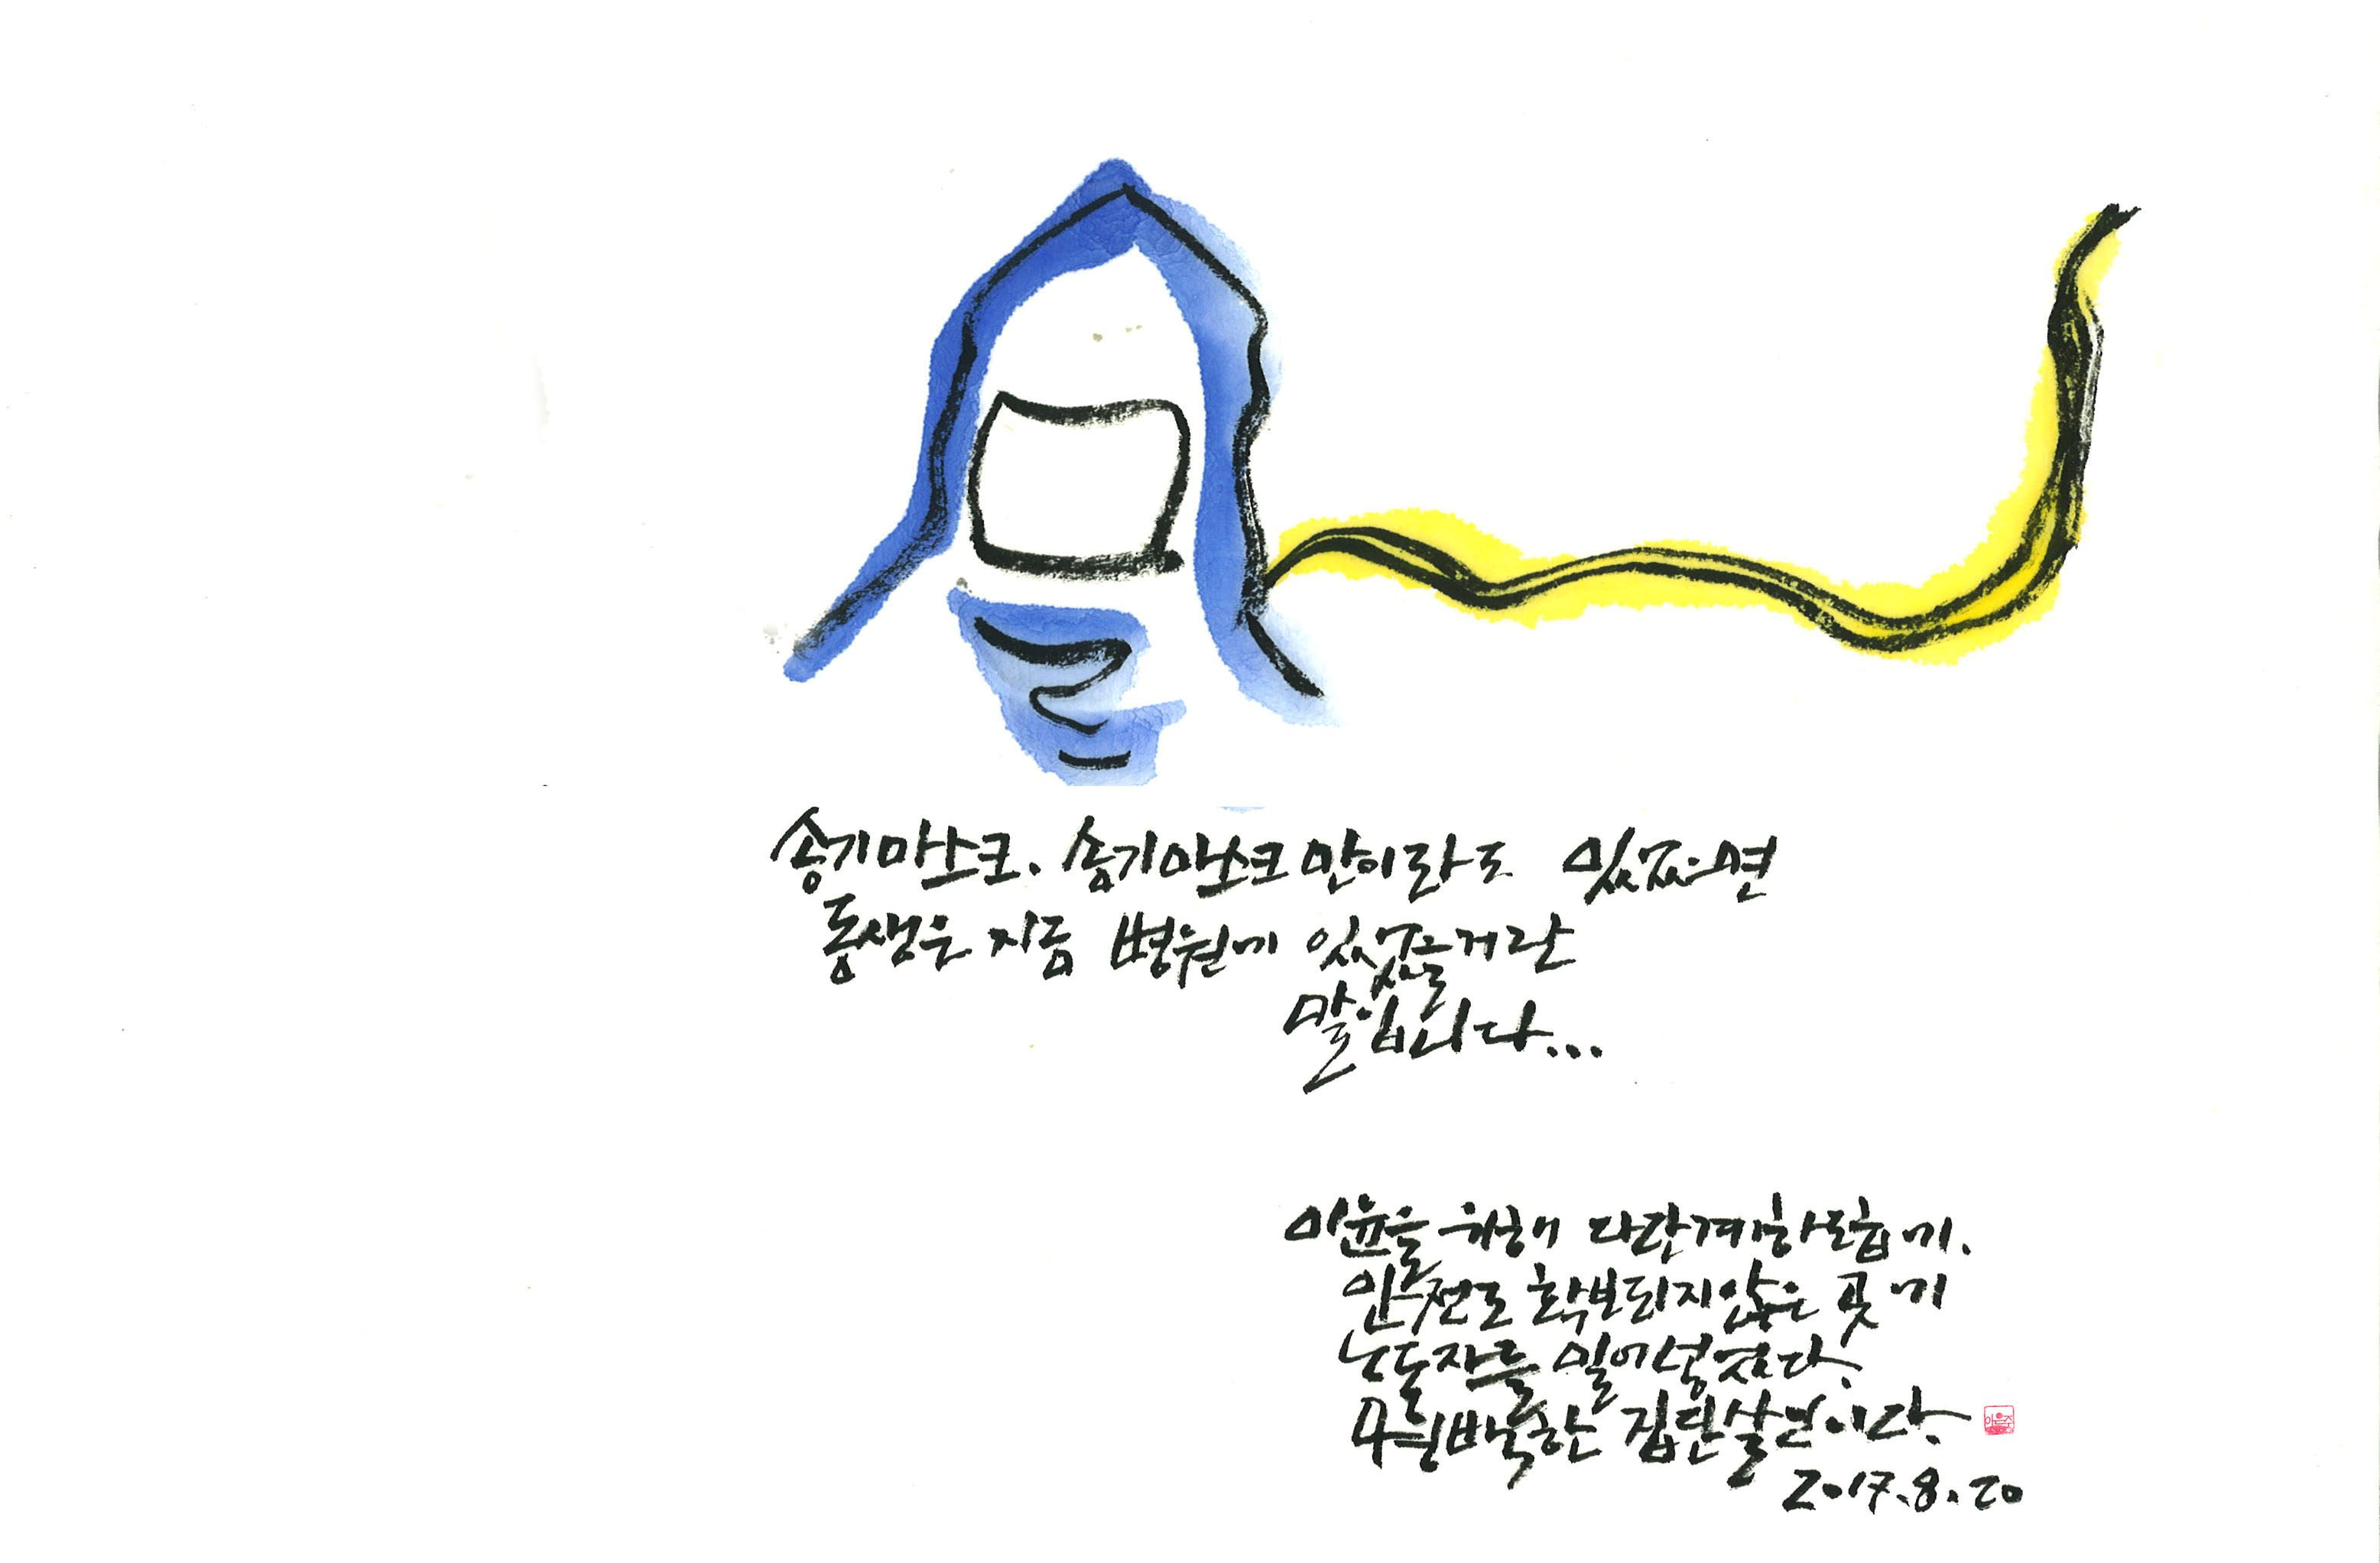 송기마스크. 송기마스크만이라도 있었으면
동생은 지금 병원에 있었을거란
말입니다...
이윤을 위해 다단계하도급에.
안전도 확보되지않은 곳에
노동자를 밀어넣었다.
명백한 집단살인이다.
2017.8.20